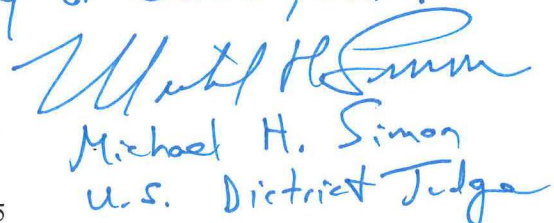 Michael H. Simon
Michael H. Simon
U.S. District Judge
5